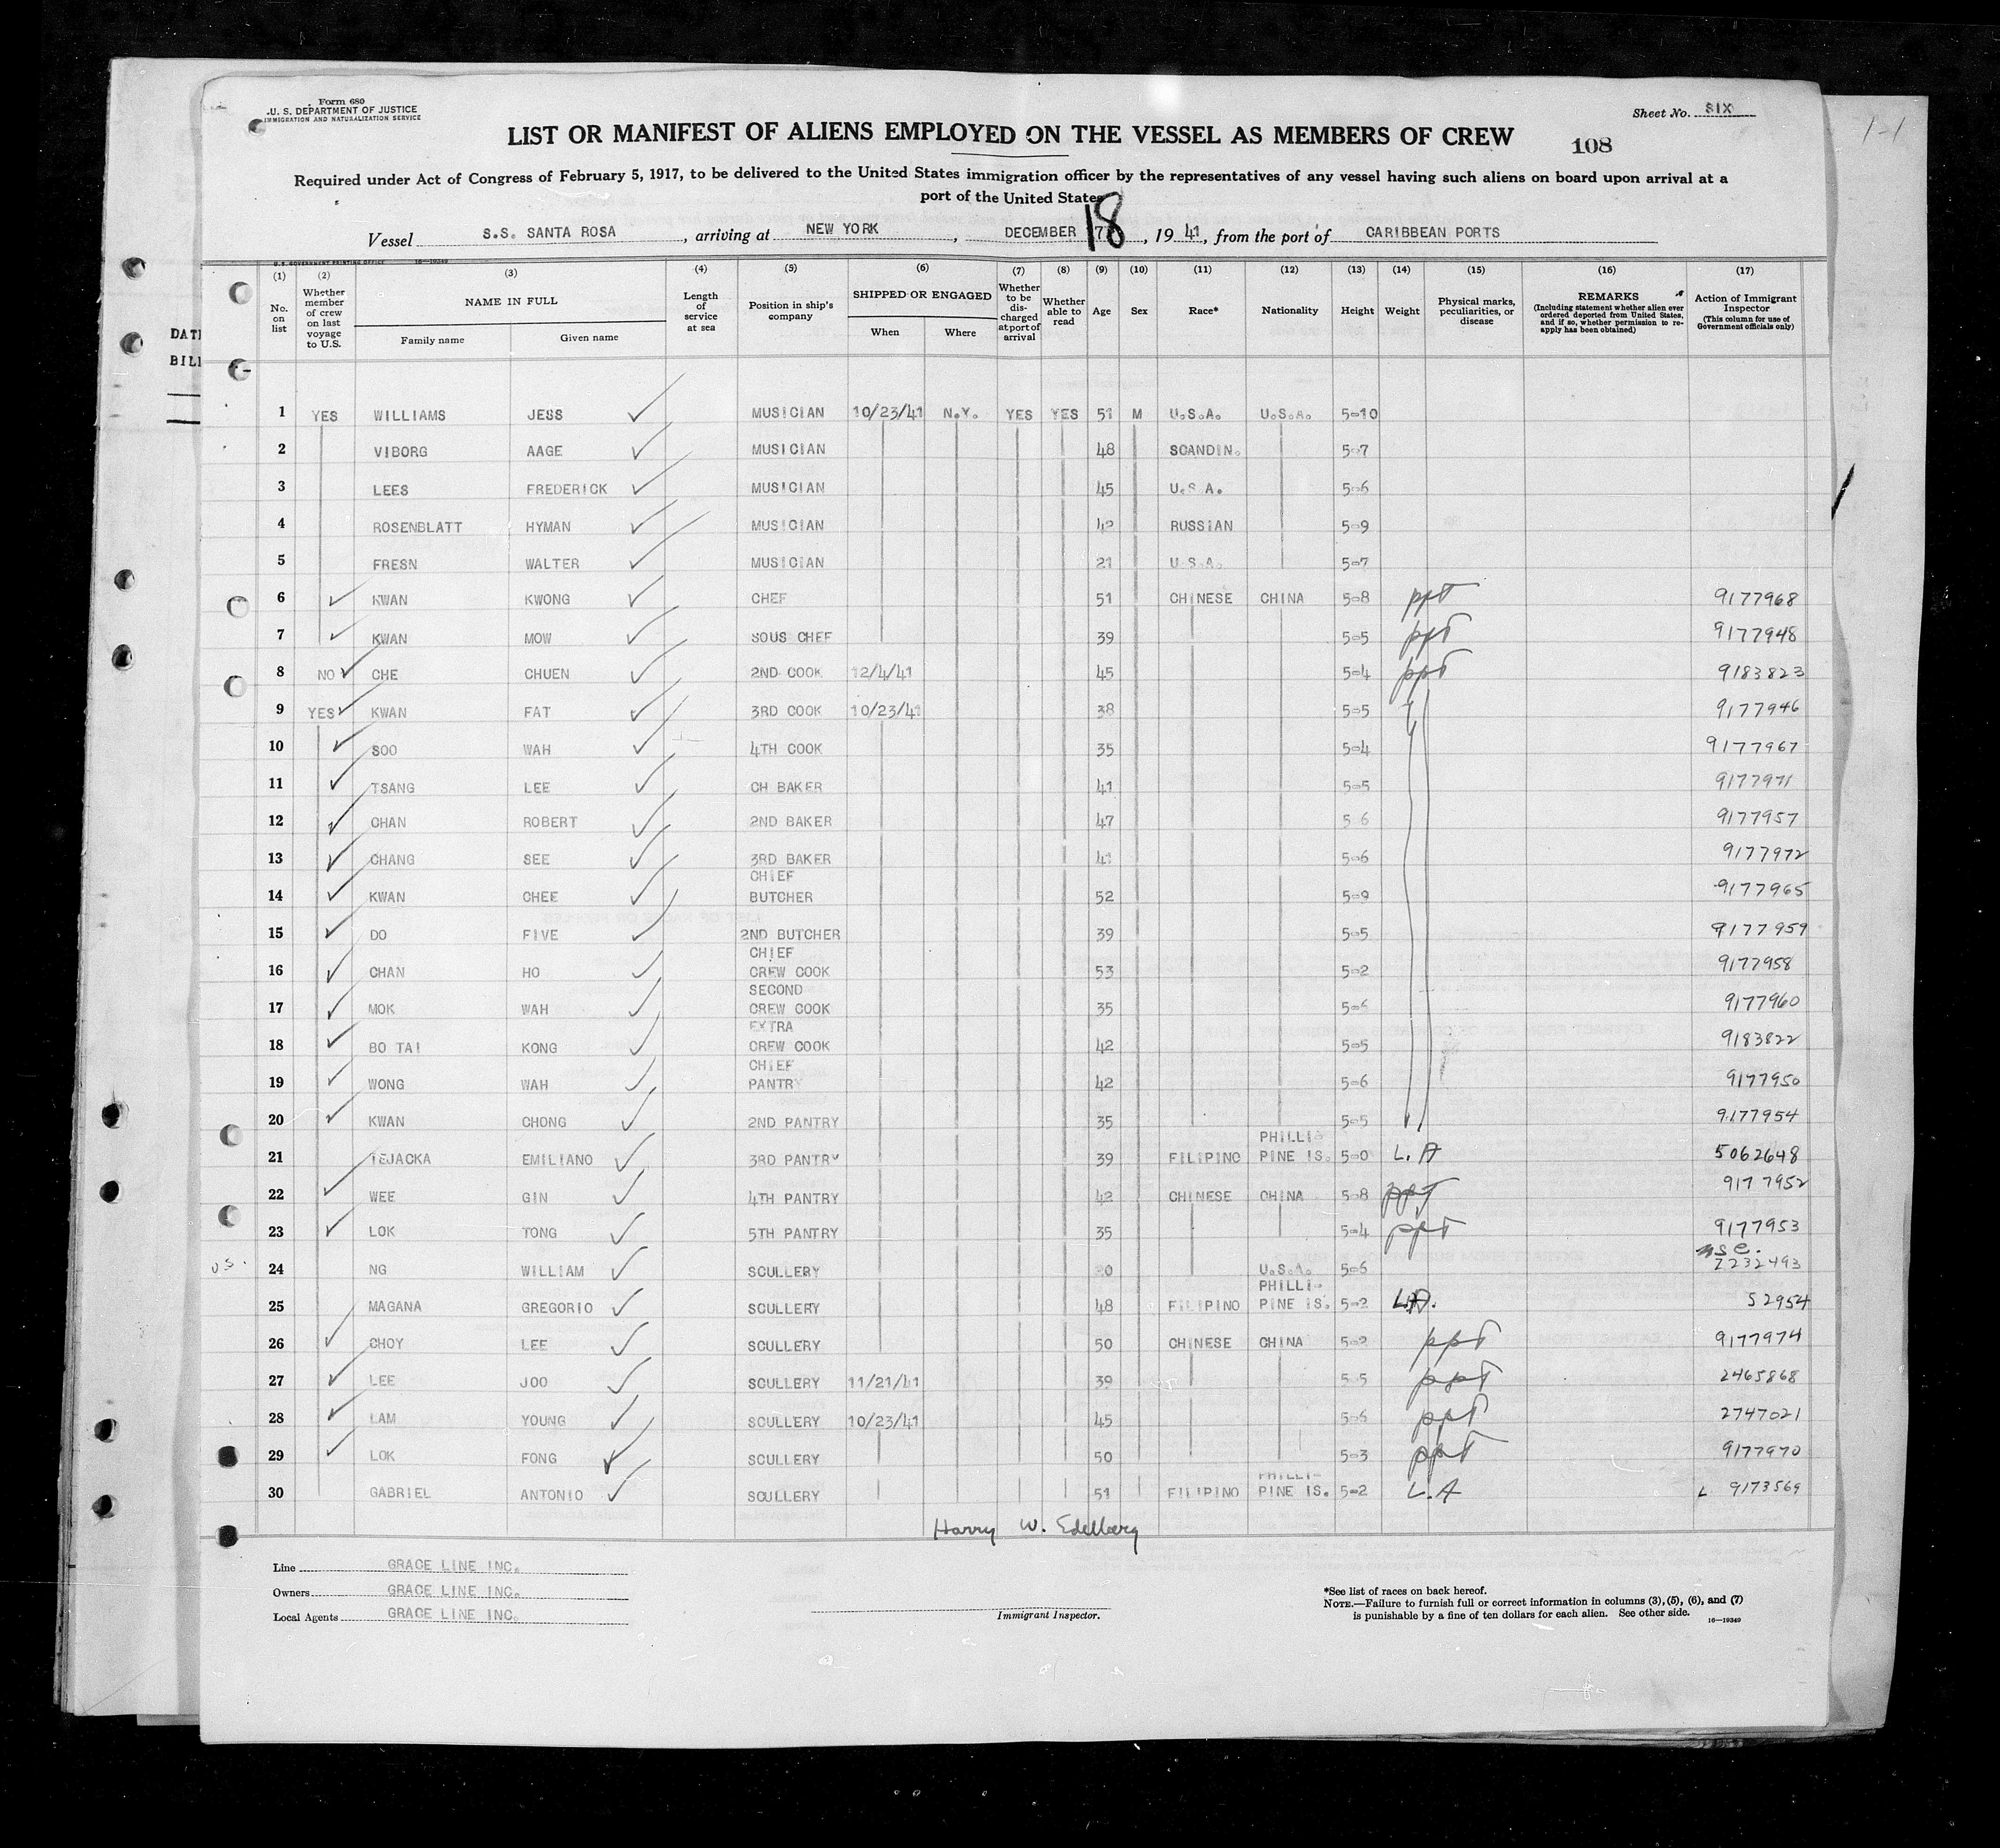 Form 680
U. S. DEPARTMENT OF JUSTICE
IMMIGRATION AND NATURALIZATION SERVICE
Sheet No. SIX
LIST OR MANIFEST OF ALIENS EMPLOYED ON THE VESSEL AS MEMBERS OF CREW
108
1-1
Required under Act of Congress of February 5, 1917, to be delivered to the United States immigration officer by the representatives of any vessel having such aliens on board upon arrival at a
port of the United States
Vessel S.S. SANTA ROSA, arriving at NEW YORK, DECEMBER 18, 1941, from the port of CARIBBEAN PORTS
U. S. GOVERNMENT PRINTING OFFICE 16—19349
DAT
BILL
(1) (2) (3) (4) (5) (6) (7) (8) (9) (10) (11) (12) (13) (14) (15) (16) (17)
No. on list
Whether member of crew on last voyage to U.S.
NAME IN FULL
Family name
Given name
Length of service at sea
Position in ship's company
SHIPPED OR ENGAGED
When
Where
Whether to be discharged at port of arrival
Whether able to read
Age
Sex
Race*
Nationality
Height
Weight
Physical marks, peculiarities, or disease
REMARKS
(Including statement whether alien ever ordered deported from United States, and if so, whether permission to reapply has been obtained)
Action of Immigrant Inspector
(This column for use of Government officials only)
1 YES WILLIAMS JESS MUSICIAN 10/23/41 N.Y. YES YES 51 M U.S.A. U.S.A. 5-10
2 VIBORG AAGE MUSICIAN 48 SCANDIN. 5-7
3 LEES FREDERICK MUSICIAN 45 U.S.A. 5-6
4 ROSENBLATT HYMAN MUSICIAN 42 RUSSIAN 5-9
5 FRESN WALTER MUSICIAN 21 U.S.A. 5-7
6 KWAN KWONG CHEF 51 CHINESE CHINA 5-8 ppt 9177968
7 KWAN MOW SOUS CHEF 39 5-5 ppt 9177948
8 NO CHE CHUEN 2ND COOK 12/4/41 45 5-4 ppt 9183823
9 YES KWAN FAT 3RD COOK 10/23/41 38 5-5 9177946
10 SOO WAH 4TH COOK 35 5-4 9177967
11 TSANG LEE CH BAKER 41 5-5 9177971
12 CHAN ROBERT 2ND BAKER 47 5 6 9177957
13 CHANG SEE 3RD BAKER 41 5-6 9177972
14 KWAN CHEE CHIEF BUTCHER 52 5-9 9177965
15 DO FIVE 2ND BUTCHER 39 5-5 9177959
16 CHAN HO CHIEF CREW COOK 53 5-2 9177958
17 MOK WAH SECOND CREW COOK 35 5-6 9177960
18 BO TAI KONG EXTRA CREW COOK 42 5-5 9183822
19 WONG WAH CHIEF PANTRY 42 5-6 9177950
20 KWAN CHONG 2ND PANTRY 35 5-5 9177954
21 TEJACKA EMILIANO 3RD PANTRY 39 FILIPINO PHILLI- PINE IS. 5-0 L.A 5062648
22 WEE GIN 4TH PANTRY 42 CHINESE CHINA 5-8 ppt 9177952
23 LOK TONG 5TH PANTRY 35 5-4 ppt 9177953
U.S. 24 NG WILLIAM SCULLERY U.S.A. 5-6 Z232493
25 MAGANA GREGORIO SCULLERY 48 FILIPINO PHILLI- PINE IS. 5-2 L.A. 52954
26 CHOY LEE SCULLERY 50 CHINESE CHINA 5-2 ppt 9177974
27 LEE JOO SCULLERY 11/21/41 39 5-5 ppt 2465868
28 LAM YOUNG SCULLERY 10/23/41 45 5-6 ppt 2747021
29 LOK FONG SCULLERY 50 5-3 ppt 9177970
30 GABRIEL ANTONIO SCULLERY 51 FILIPINO PHILLI- PINE IS. 5-2 L.A L 9173569
Harry W. Edelberg
Line GRACE LINE INC.
Owners GRACE LINE INC.
Local Agents GRACE LINE INC.
Immigrant Inspector.
*See list of races on back hereof.
NOTE.—Failure to furnish full or correct information in columns (3), (5), (6), and (7)
is punishable by a fine of ten dollars for each alien. See other side. 16—19349